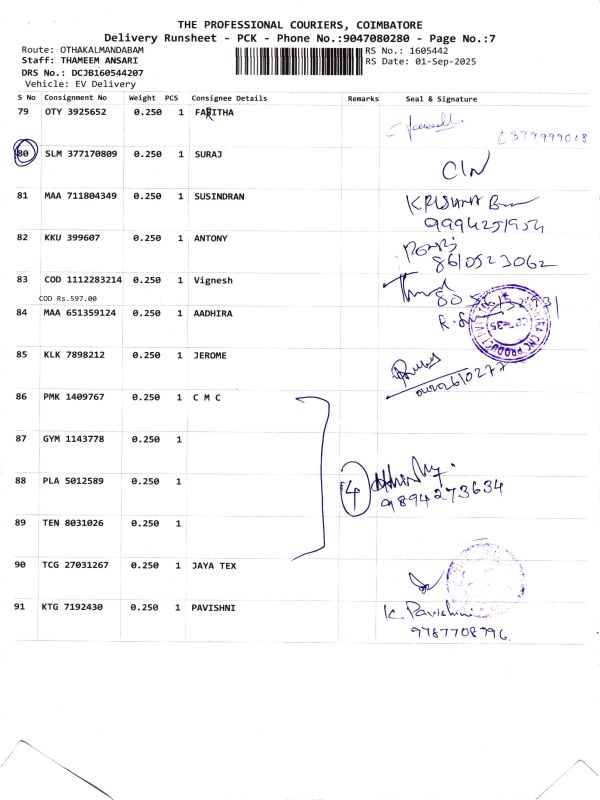 THE PROFESSIONAL COURIERS, COIMBATORE
Delivery Runsheet - PCK - Phone No.:9047080280 - Page No.:7
Route: OTHAKALMANDABAM RS No.: 1605442
Staff: THAMEEM ANSARI RS Date: 01-Sep-2025
DRS No.: DCJB160544207
Vehicle: EV Delivery
S No Consignment No Weight PCS Consignee Details Remarks Seal & Signature
79 OTY 3925652 0.250 1 FARITHA
80 SLM 377170809 0.250 1 SURAJ
C/N
81 MAA 711804349 0.250 1 SUSINDRAN KRISHNA
9994251954
82 KKU 399607 0.250 1 ANTONY
8610523062
83 COD 1112283214 0.250 1 Vignesh
COD Rs.597.00
84 MAA 651359124 0.250 1 AADHIRA
85 KLK 7898212 0.250 1 JEROME
86 PMK 1409767 0.250 1 C M C
87 GYM 1143778 0.250 1
88 PLA 5012589 0.250 1 4
9894273634
89 TEN 8031026 0.250 1
90 TCG 27031267 0.250 1 JAYA TEX
91 KTG 7192430 0.250 1 PAVISHNI K. Pavishni
9787708796